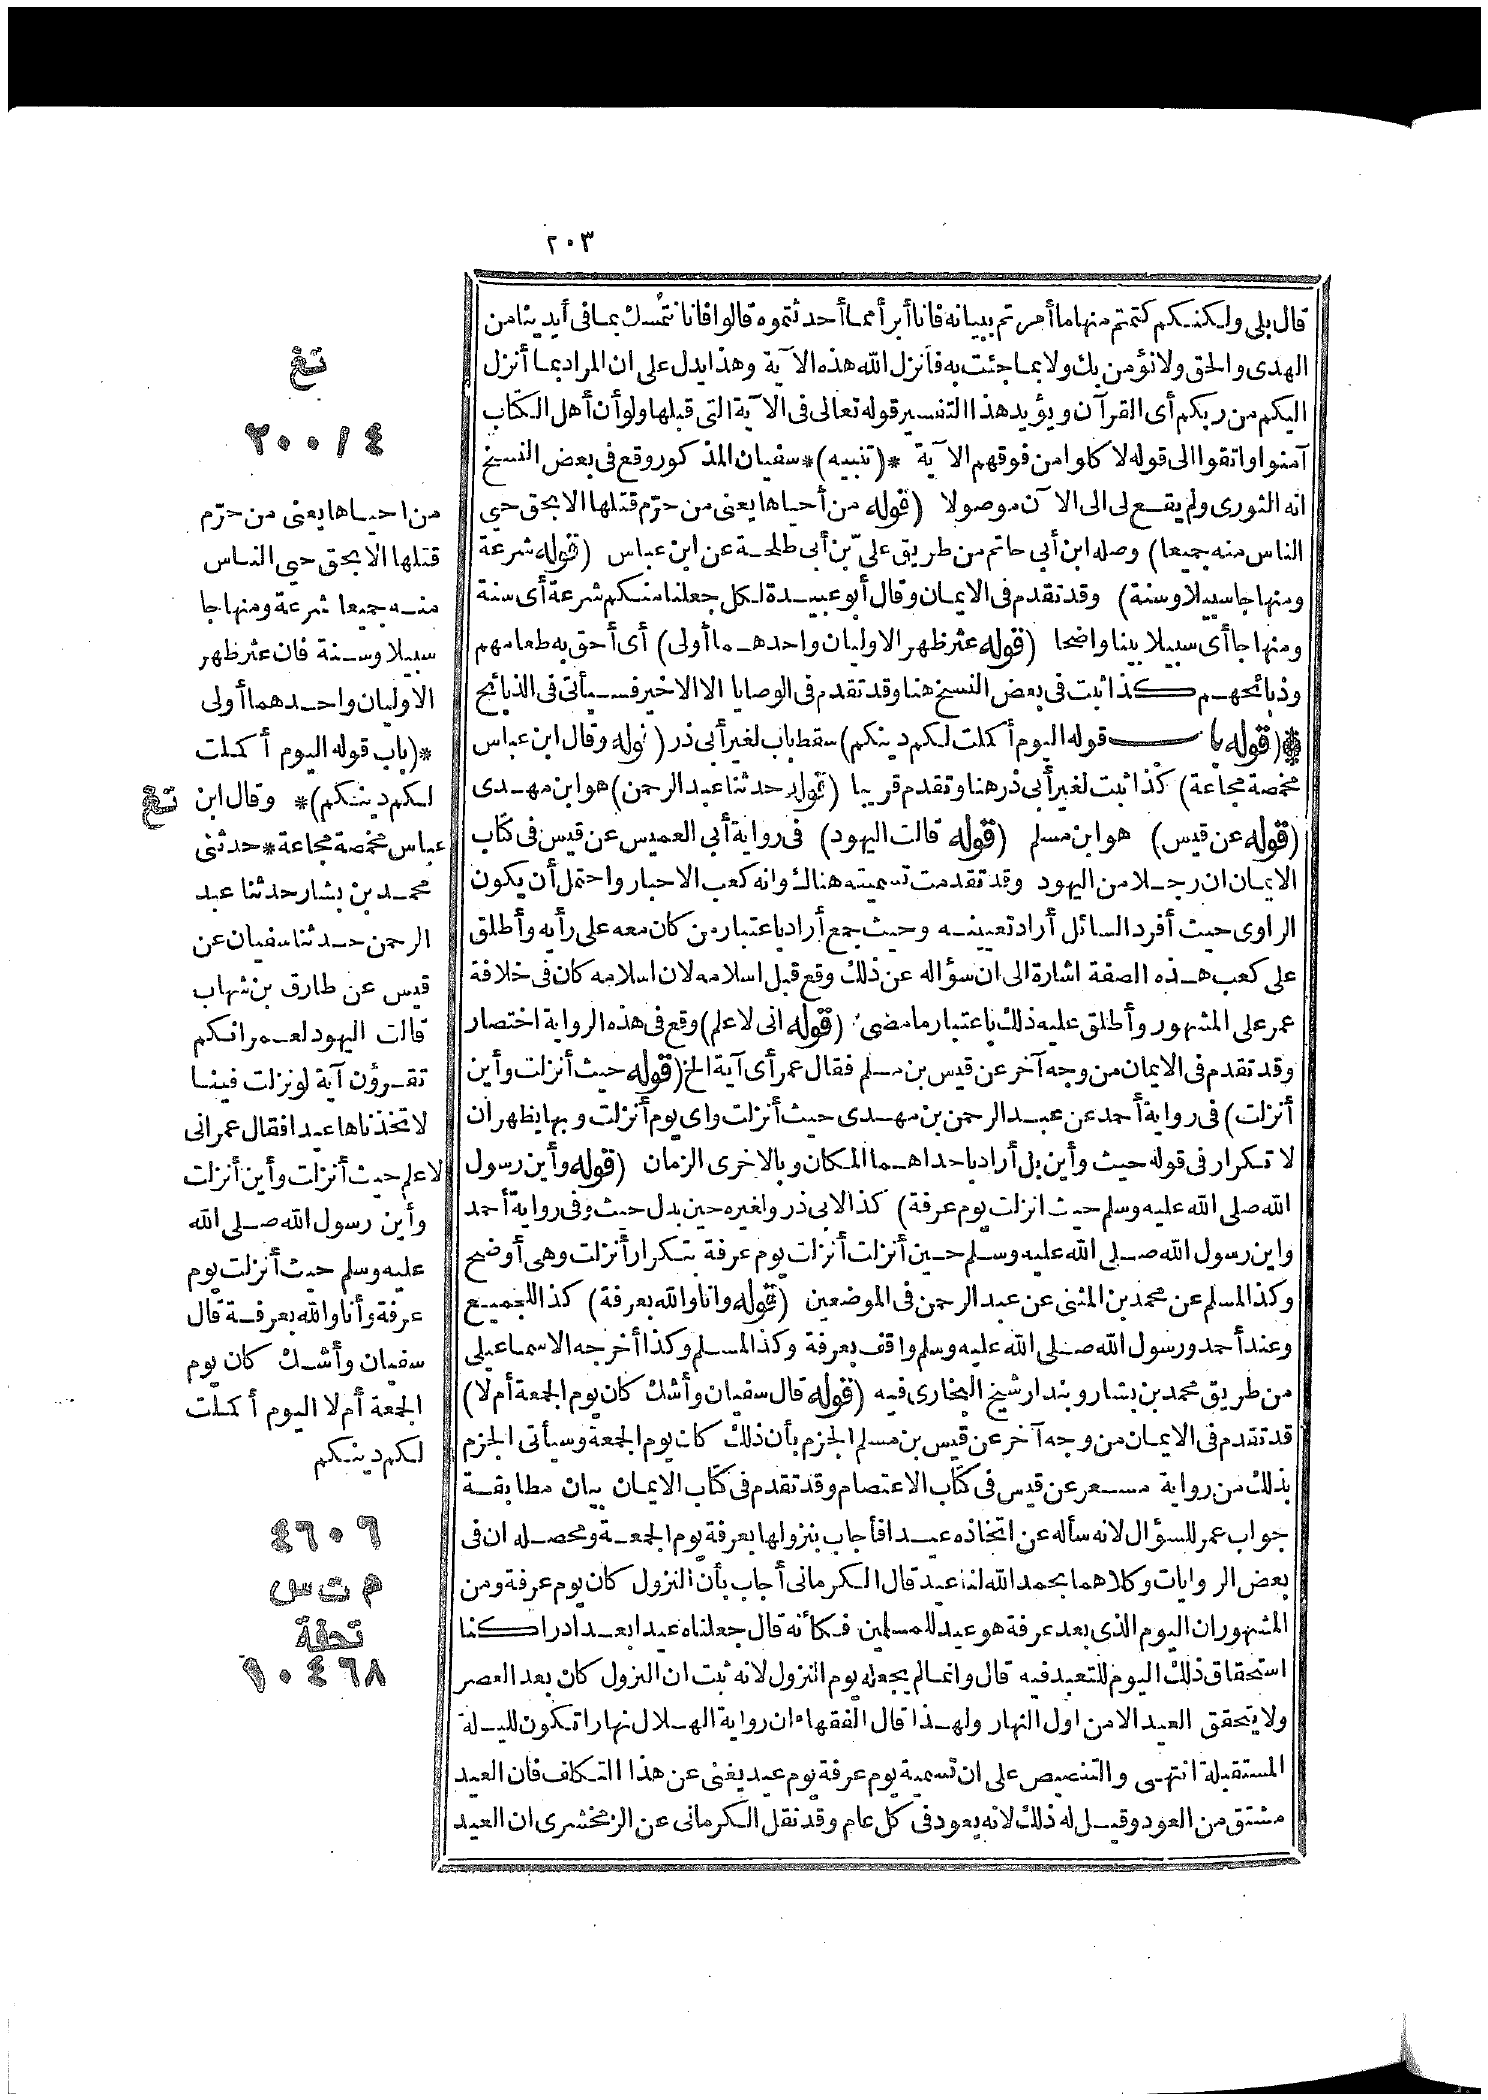 ٢٠٣
قال بلى ولكنكم كتمتم منها ما أمرتم ببيانه فانا أبرأ مما أحدثتموه قالوا فانا نتمسك بما فى أيدينا من
الهدى والحق ولا نؤمن بك ولا بما جئت به فأنزل الله هذه الآية وهذا يدل على ان المراد بما أنزل
اليكم من ربكم أى القرآن ويؤيد هذا التفسير قوله تعالى فى الآية التى قبلها ولو أن أهل الكتاب
آمنوا واتقوا الى قوله لا كلوا من فوقهم الآية *(تنبيه)* سفيان المذكور وقع فى بعض النسخ
انه الثورى ولم يقع لى الى الآن موصولا (قوله من أحياها يعنى من حرّم قتلها الا بحق حيى
الناس منه جميعا) وصله ابن أبى حاتم من طريق علىّ بن أبى طلحة عن ابن عباس (قوله شرعة
ومنها جاسبيلا وسنة) وقد تقدم فى الايمان وقال أبو عبيدة لكل جعلنا منكم شرعة أى سنة
ومنها جا أى سبيلا بينا واضحا (قوله عثر ظهر الاوليان واحدهما أولى) أى أحق به طعامهم
وذبائحهم كذا ثبت فى بعض النسخ هنا وقد تقدم فى الوصايا الا الاخير فسيأتى فى الذبائح
*(قوله باب قوله اليوم أكملت لكم دينكم) سقط باب لغير أبى ذر (قوله وقال ابن عباس
مخمصة مجاعة) كذا ثبت لغير أبى ذر هنا وتقدم قريبا (قوله حدثنا عبد الرحمن) هو ابن مهدى
(قوله عن قيس) هو ابن مسلم (قوله قالت اليهود) فى رواية أبى العميس عن قيس فى كتاب
الايمان ان رجلا من اليهود وقد تقدمت تسميته هناك وانه كعب الاحبار واحتمل أن يكون
الراوى حيث أفرد السائل أراد تعيينه وحيث جمع أراد باعتبار من كان معه على رأيه وأطلق
على كعب هذه الصفة اشارة الى ان سؤاله عن ذلك وقع قبل اسلامه لان اسلامه كان فى خلافة
عمر على المشهور وأطلق عليه ذلك باعتبار ما مضى (قوله انى لاعلم) وقع فى هذه الرواية اختصار
وقد تقدم فى الايمان من وجه آخر عن قيس بن مسلم فقال عمر أى آية الخ (قوله حيث أنزلت وأين
أنزلت) فى رواية أحمد عن عبد الرحمن بن مهدى حيث أنزلت واى يوم أنزلت وبها يظهر ان
لا تكرار فى قوله حيث وأين بل أراد باحداهما المكان وبالاخرى الزمان (قوله وأين رسول
الله صلى الله عليه وسلم حيث انزلت يوم عرفة) كذا لابى ذر ولغيره حين بدل حيث وفى رواية أحمد
واين رسول الله صلى الله عليه وسلم حين أنزلت أنزلت يوم عرفة بتكرار أنزلت وهى أوضح
وكذا لمسلم عن محمد بن المثنى عن عبد الرحمن فى الموضعين (قوله وانا والله بعرفة) كذا للجميع
وعند أحمد ورسول الله صلى الله عليه وسلم واقف بعرفة وكذا لمسلم وكذا أخرجه الاسماعيلى
من طريق محمد بن بشار وبندار شيخ البخارى فيه (قوله قال سفيان وأشك كان يوم الجمعة أم لا)
قد تقدم فى الايمان من وجه آخر عن قيس بن مسلم الجزم بأن ذلك كان يوم الجمعة وسيأتى الجزم
بذلك من رواية مسعر عن قيس فى كتاب الاعتصام وقد تقدم فى كتاب الايمان بيان مطابقة
جواب عمر للسؤال لانه سأله عن اتخاذه عيدا فأجاب بنزولها بعرفة يوم الجمعة ومحصله ان فى
بعض الروايات وكلاهما بحمد الله لنا عيد قال الكرمانى أجاب بأن النزول كان يوم عرفة ومن
المشهور ان اليوم الذى بعد عرفة هو عيد للمسلمين فكأنه قال جعلناه عيدا بعد ادراكنا
استحقاق ذلك اليوم للتعبد فيه قال وانما لم يجعله يوم النزول لانه ثبت ان النزول كان بعد العصر
ولا يتحقق العيد الا من اول النهار ولهذا قال الفقهاء ان رواية الهلال نهارا تكون لليلة
المستقبلة انتهى والتنصيص على ان تسمية يوم عرفة يوم عيد يغنى عن هذا التكلف فان العيد
مشتق من العود وقيل له ذلك لانه يعود فى كل عام وقد نقل الكرمانى عن الزمخشرى ان العيد
تغ
٢٠٠/٤
من احياها يعنى من حرّم
قتلها الا بحق حيى الناس
منه جميعا شرعة ومنها جا
سبيلا وسنة فان عثر ظهر
الاوليان واحدهما أولى
*(باب قوله اليوم أكملت
لكم دينكم)* وقال ابن تغ
عباس مخمصة مجاعة * حدثنى
محمد بن بشار حدثنا عبد
الرحمن حدثنا سفيان عن
قيس عن طارق بن شهاب
قالت اليهود لعمر انكم
تقرؤن آية لو نزلت فينا
لاتخذناها عيدا فقال عمر انى
لاعلم حيث أنزلت وأين أنزلت
وأين رسول الله صلى الله
عليه وسلم حيث أنزلت يوم
عرفة وأنا والله بعرفة قال
سفيان وأشك كان يوم
الجمعة أم لا اليوم أكملت
لكم دينكم
٤٦٠٦
م ت س
تحفة
١٠٤٦٨